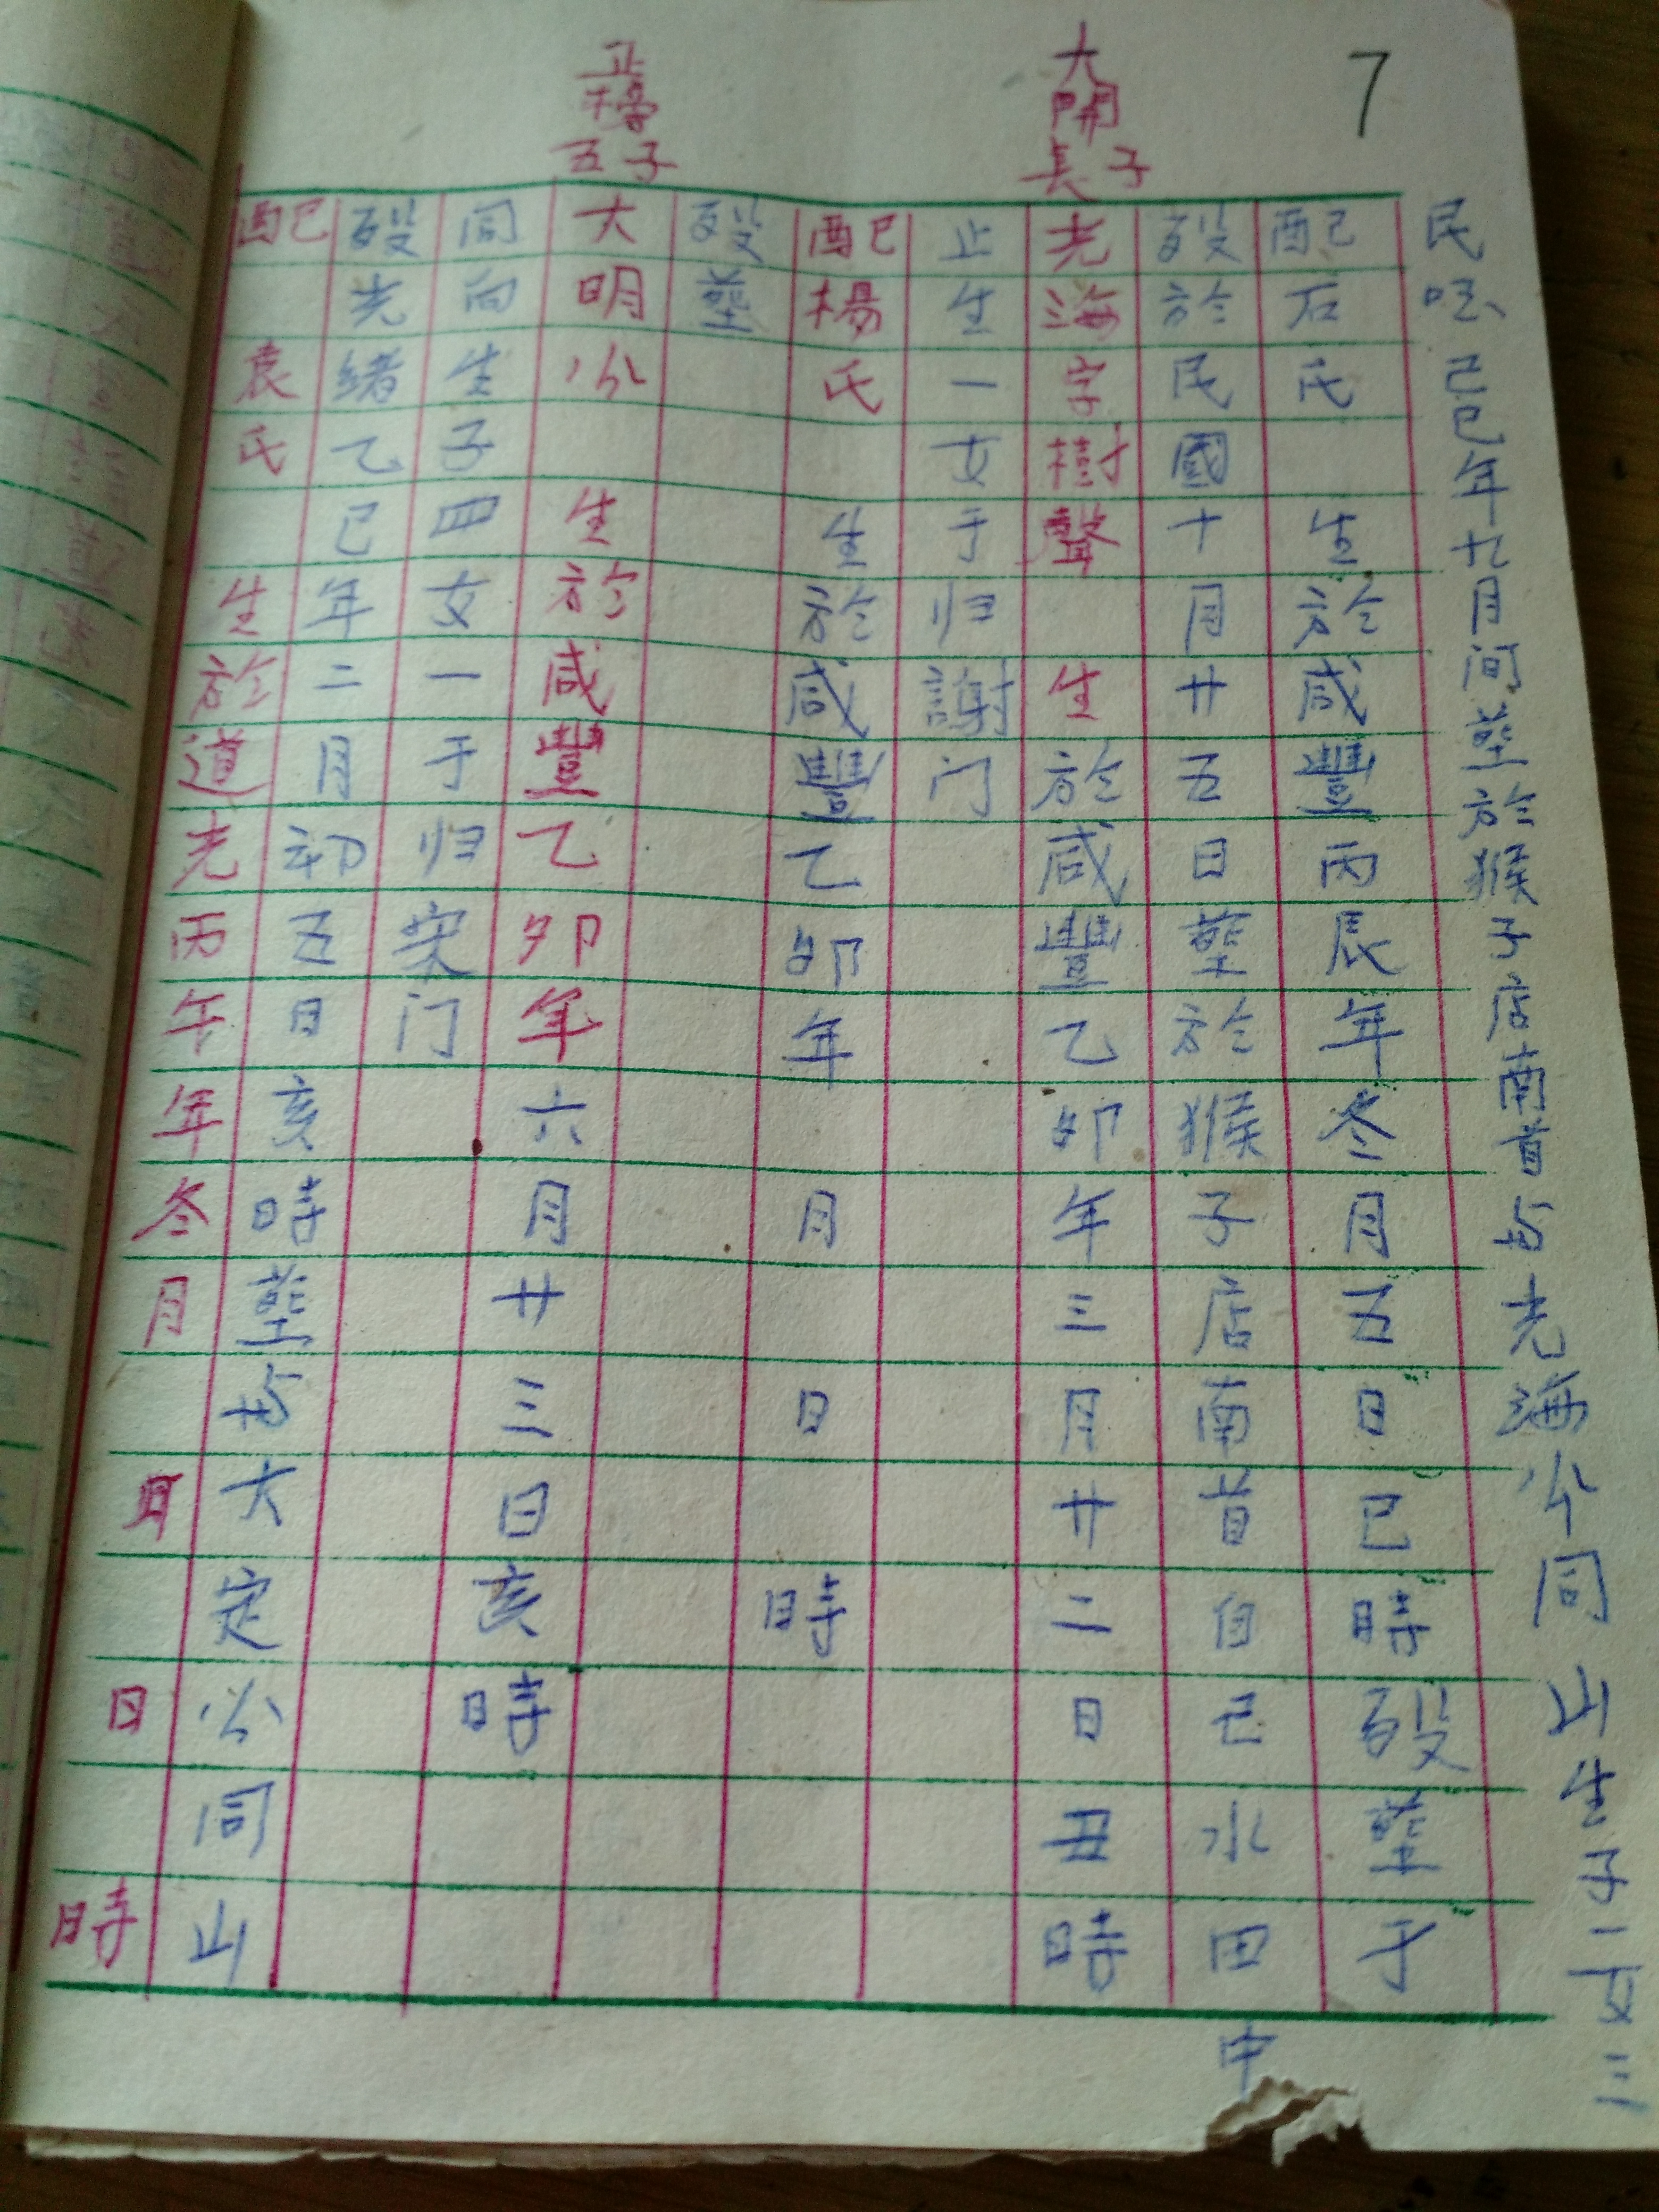 7
大開長子
正樗五子
民国己巳年九月间塟於猴子店南首与光海公同山生子二女三
配石氏生於咸豐丙辰年冬月五日巳時殁塟于
殁於民國十月廿五日塟於猴子店南首自己水田中
光海字樹聲生於咸豐乙卯年三月廿二日丑時
止生一女于归謝门
配楊氏生於咸豐乙卯年月日時
殁塟
大明公生於咸豐乙卯年六月廿三日亥時
同向生子四女一于归宋门
殁光绪乙巳年二月初五日亥時塟於大定公同山
配袁氏生於道光丙午年冬月日時